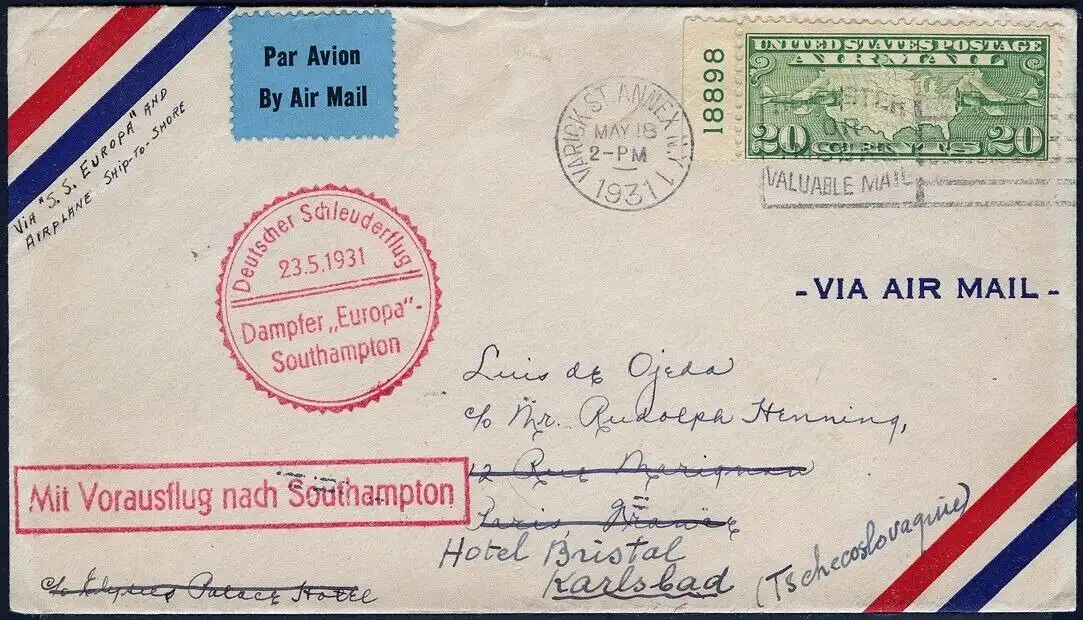 Via "S.S. Europa" and
Airplane Ship-To-Shore
Par Avion
By Air Mail
VARICK ST. ANNEX N.Y.
MAY 18
2-PM
1931
18898
UNITED STATES POSTAGE
AIR MAIL
20 CENTS 20
REGISTER
OR
VALUABLE MAIL
Deutscher Schleuderflug
23.5.1931
Dampfer „Europa"-
Southampton
- VIA AIR MAIL -
Luis de Ojeda
c/o Mr. Rudolph Henning,
12 Rue Marignan
Paris France
Mit Vorausflug nach Southampton
Hotel Bristal
Karlsbad
(Tschecoslovaquie)
c/o Elysees Palace Hotel